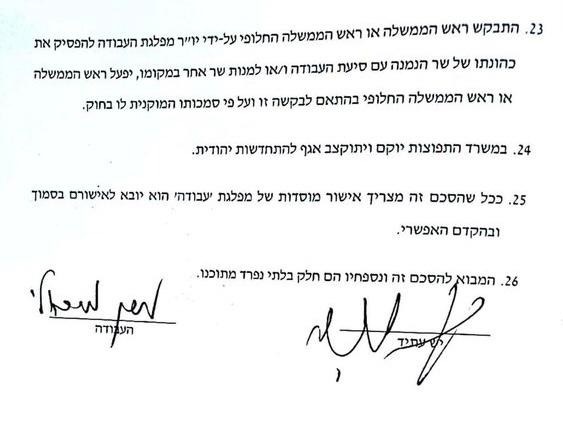 23. התבקש ראש הממשלה או ראש הממשלה החלופי על-ידי יו״ר מפלגת העבודה להפסיק את
כהונתו של שר הנמנה עם סיעת העבודה ו/או למנות שר אחר במקומו, יפעל ראש הממשלה
או ראש הממשלה החלופי בהתאם לבקשה זו ועל פי סמכותו המוקנית לו בחוק.
24. במשרד התפוצות יוקם ויתוקצב אגף להתחדשות יהודית.
25. ככל שהסכם זה מצריך אישור מוסדות של מפלגת 'עבודה' הוא יובא לאישורם בסמוך
ובהקדם האפשרי.
26. המבוא להסכם זה ונספחיו הם חלק בלתי נפרד מתוכנו.
יש עתיד
העבודה